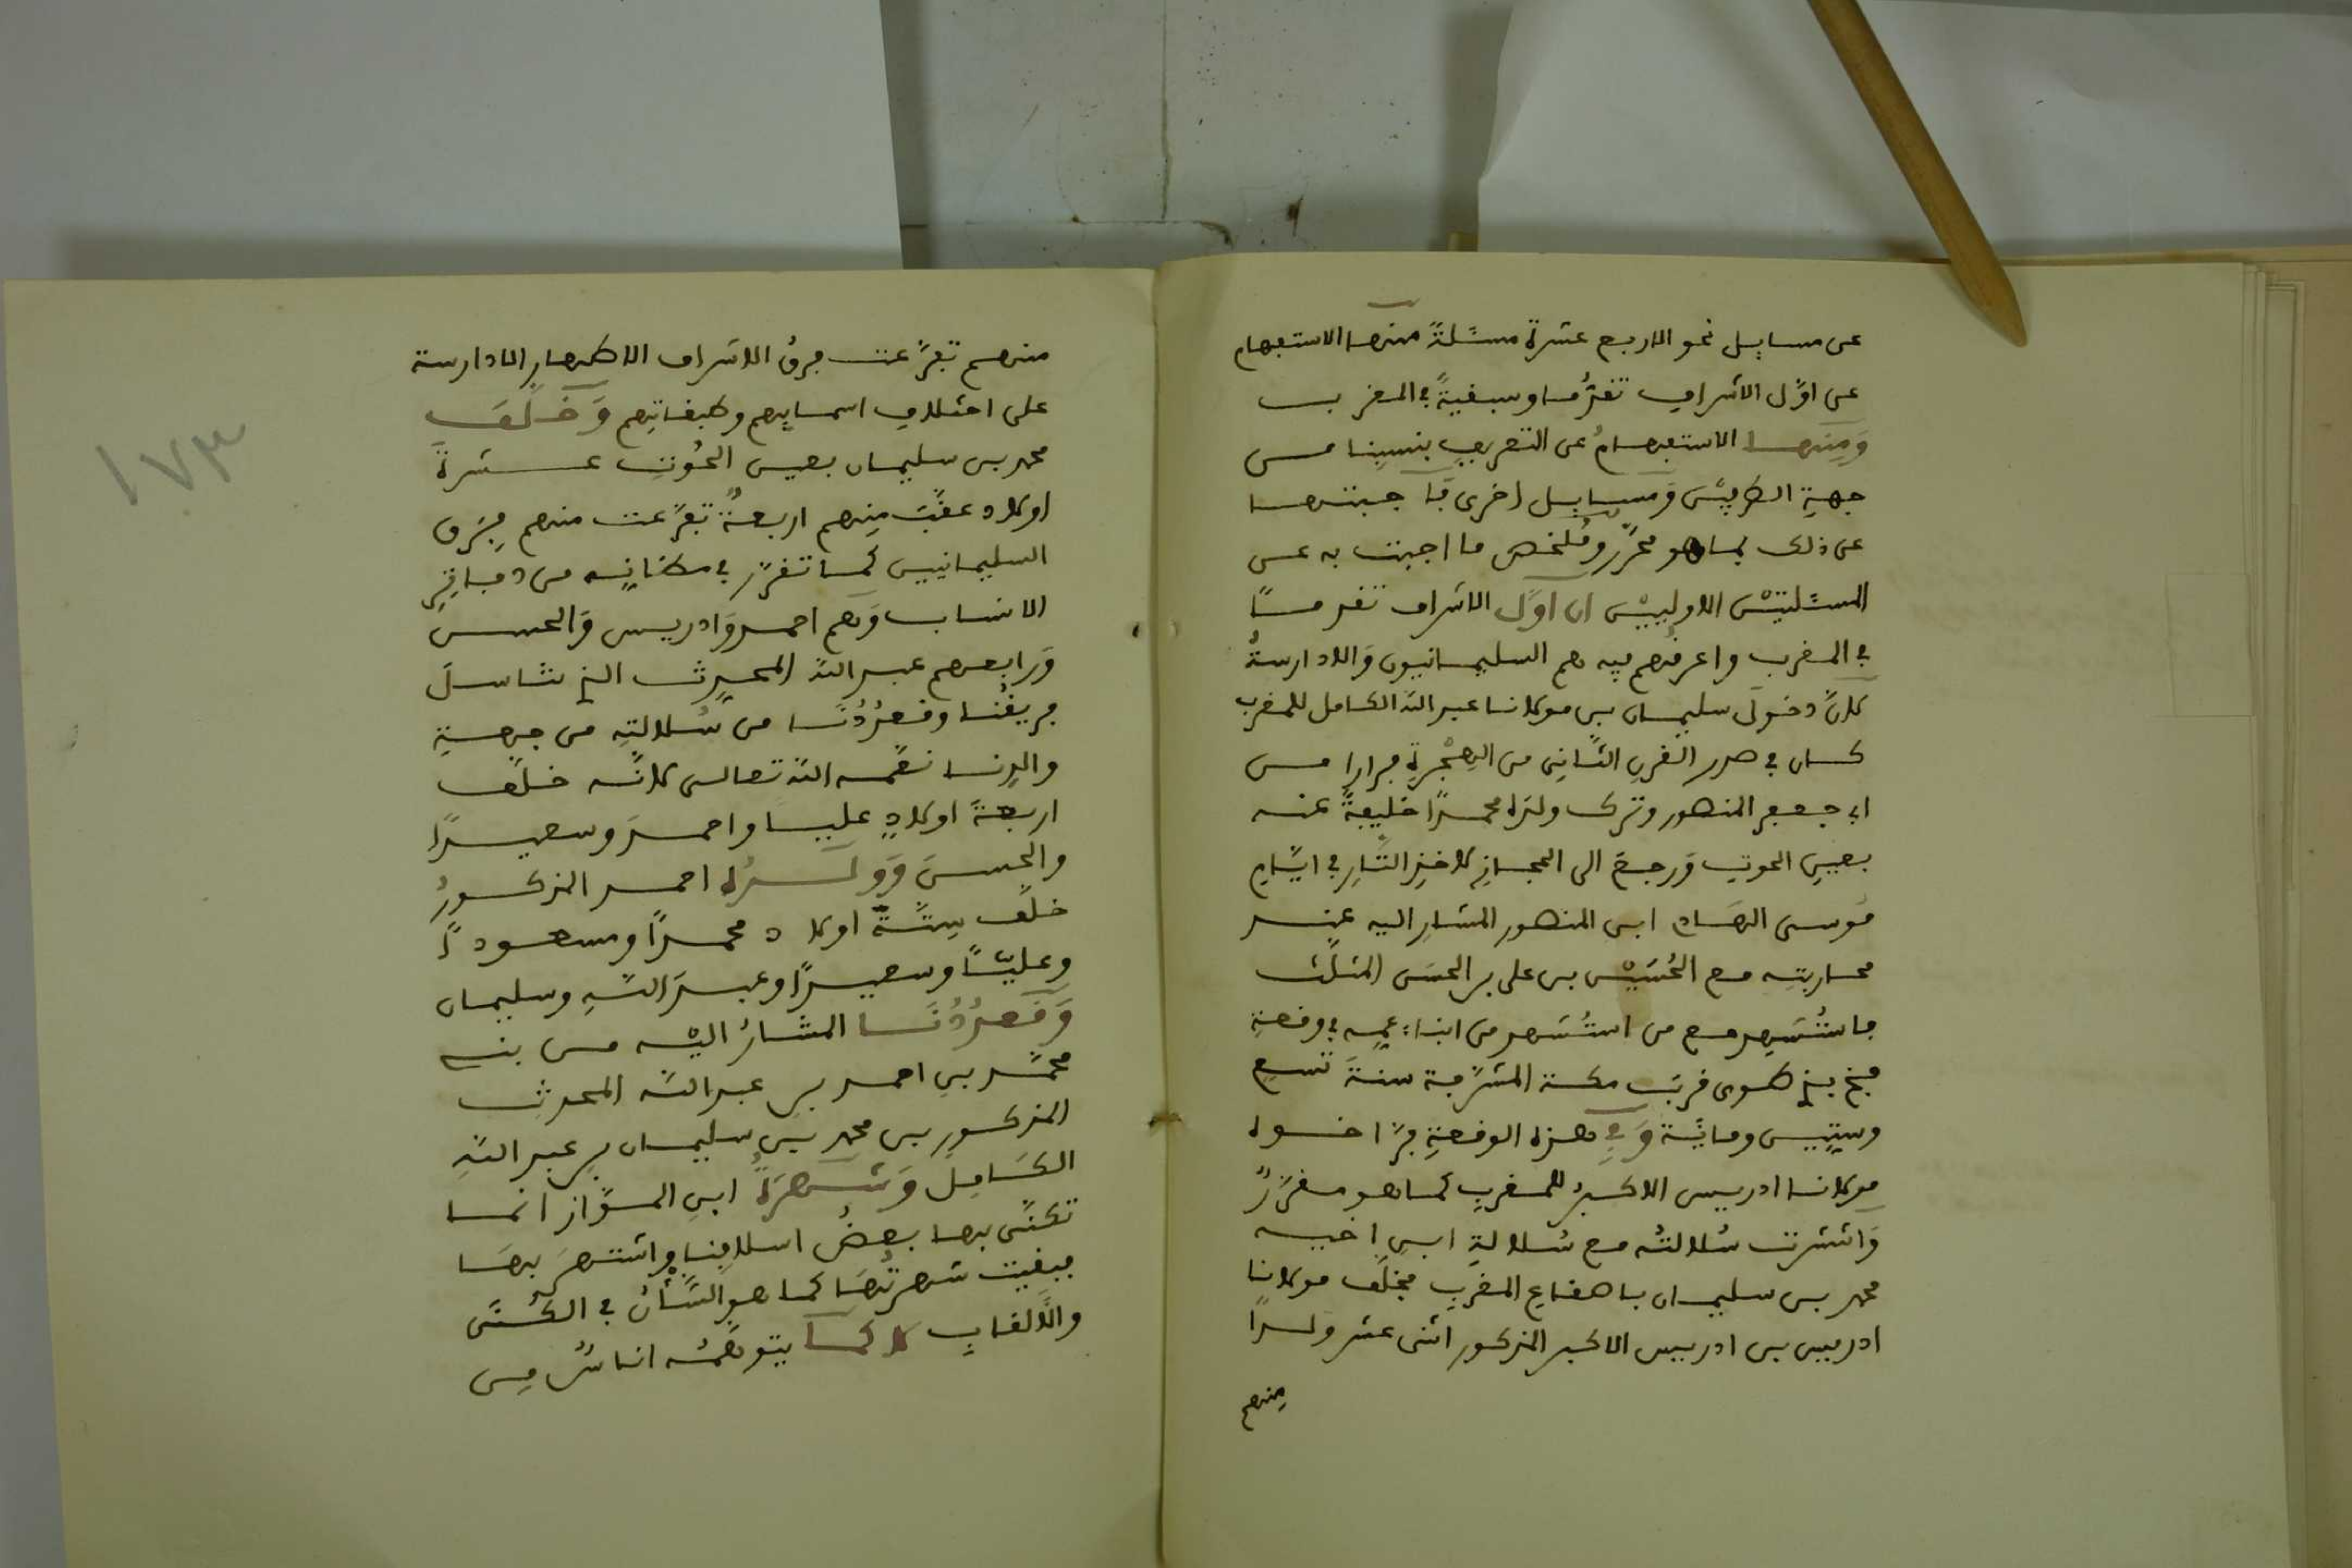 عن مسايل نحو الاربع عشرة مسئلةً منها الاستفهام
عن اوّل الاشراف تقدُّما وسبقيةً في المغرب
وَمِنها الاستفهامُ عن التعريف بنسبِنا من
جهةِ الطرفيْن وَمسايل اخرى فَاجبتها
عن ذلك بما هو محرّر وَمُلخص ما اجبت به عن
المسئليتيْن الاوليِيْن ان اوّل الاشراف تقدمًا
في المغرب واعرفُهم فيه هم السليمانيون وَالادارسةُ
لانّ دخولَ سليمان بن مولانا عبد اللّه الكامل للمغرب
كان في صدر القرنِ الثّانِي من الهِجْرةِ فرارا من
ابي جعفر المنصور وترك ولدَه محمدًا خليفةً عنه
بعينِ الحوت وَرجعَ الى الحجازِ لاخذِ الثّارِ في ايّامِ
مُوسى الهَادي ابن المنصور المشار اليه عند
محاربتِه مع الحُسَيْن بن على بن الحسَن المثلّث
فاستُشهِد مع من استُشهد من ابناءِ عمِه في وقعةِ
فخ بذي طوى قربَ مكة المشرّفة سنةَ تسعِ
وسِتّين ومائَة وَفي هذه الوقعةِ فرّ اخوه
مولانا ادريس الاكبرُ للمغربِ كما هو مقرّرٌ
وَانتشرت سُلالتُه مع سُلالةِ ابنِ اخيه
محمد بن سليمان باصقاع المغربِ فخلّف مولانا
ادريس بن ادريس الاكبر المذكور اثنى عشر ولدًا
منهم
منهم تفرّعت فرقُ الاشراف الاطهارِ الادارسة
على اختلافِ اسمايِهم وطبقاتِهم وَخلّفَ
محمد بن سليمان بعين الحُوتِ عشرةَ
اولاد عقّبَ مِنهم اربعةٌ تفرّعت منهم فِرَق
السليمانيين كما تقرّر في مظانّه من دفاتِرِ
الانساب وَهم احمد وَادريس وَالحسن
وَرابعهم عبد اللّه المحدِث الذي تناسلَ
فريقُنا وقُعدُدُنا من سُلالتِه من جهةِ
والدِنا نعّمه اللّه تعالى لانّه خلّف
اربعةَ اولادٍ عليا واحمدَ وسعيدًا
والحسنَ وَوَلدُه احمد المذكورُ
خلّف سِتّةَ اولاد محمدًا ومسعودًا
وعليّا وسعيدًا وعبدَ اللّهِ وسليمان
وَقعدُدُنَا المشارُ اليْه من بني
محمّد بنِ احمد بن عبد اللّه المحدثِ
المذكورِ بن محمد بن سليمان بن عبد اللّهِ
الكَامِل وَشهرَةُ ابنِ المسوّاز انما
تكنّى بها بعضُ اسلافِنا واشتهرَ بِهَا
فبقيت شهرتُهَا كما هو الشّأن في الكُنَى
والالقاب لا كما يتوهّمُه اناسٌ مِن
١٧٣